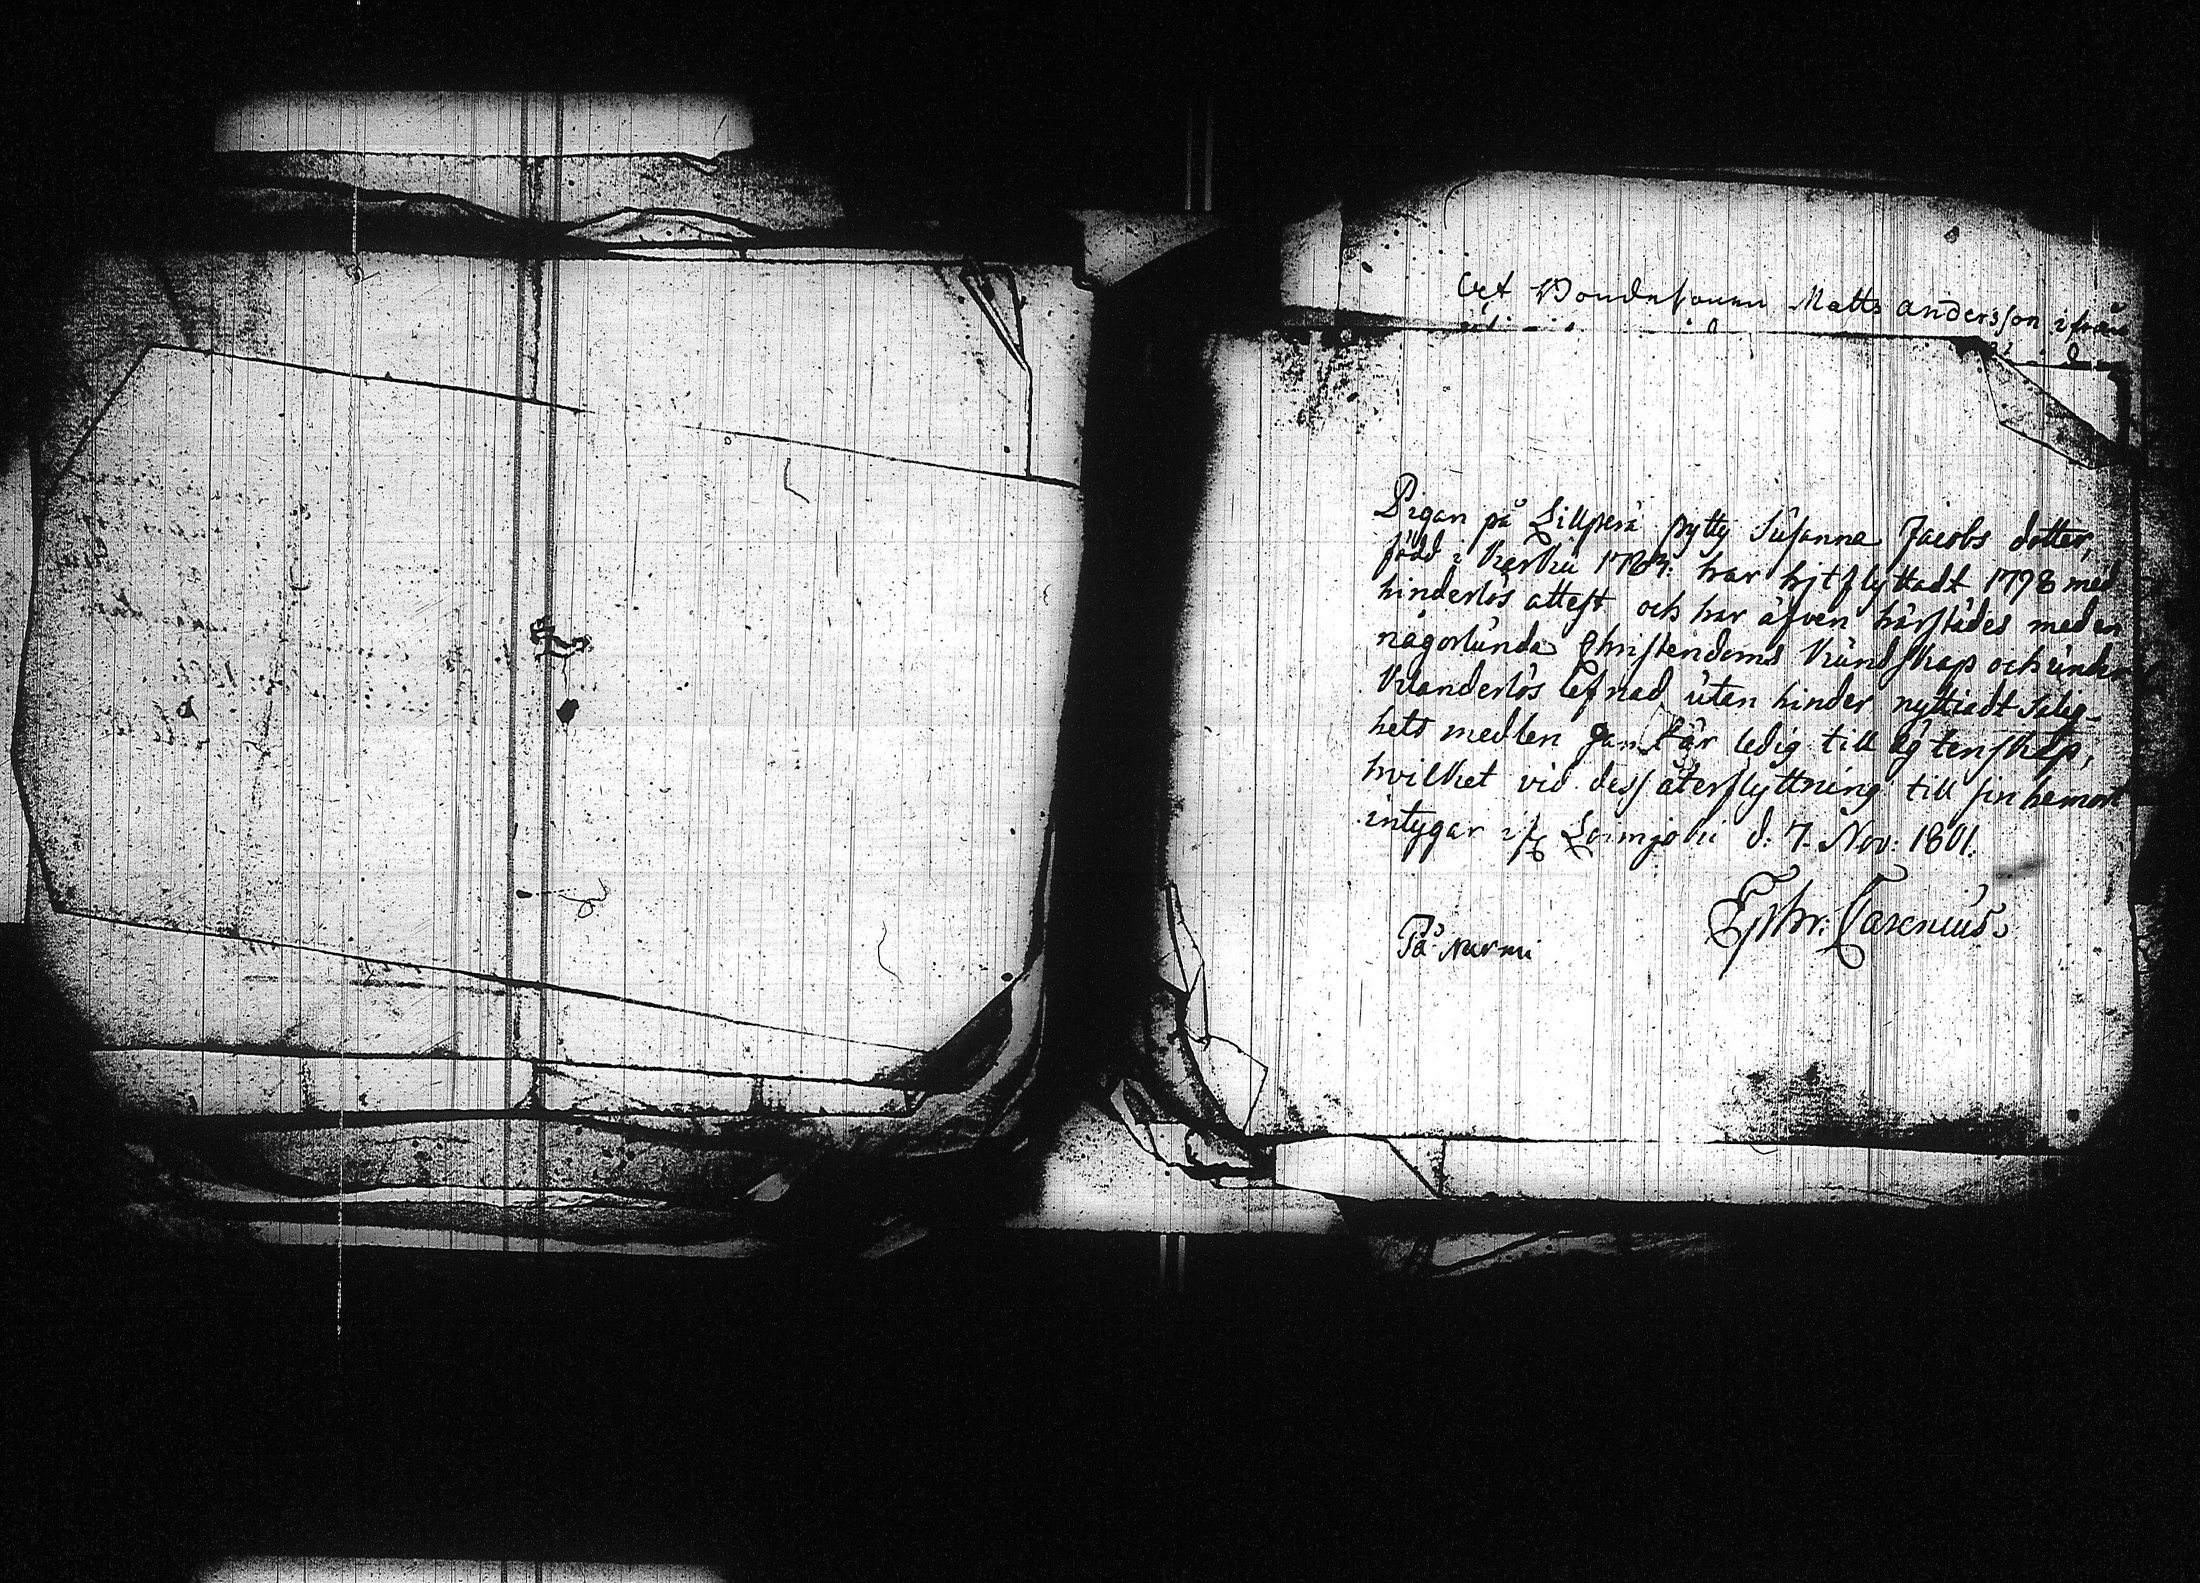 Bondesonen Matts Andersson ifrån
Pigan på Lillperä pytty Susanna Jacobs dotter,
född i Karkku 1784. har hjtflyttadt 1798 med
hinderlös attest och har äfven härstädes med en
någorlunda Christendoms kundskap och under
klanderlös lefnad utan hinder nyttiadt salig-
hets medlen samt är ledig till ägtenskap,
hvilket vid dess återflyttning till sin hemort
intygar ifr Loimjoki d. 7. Nov. 1801.
Ephr. Carenius.
På Nurmi